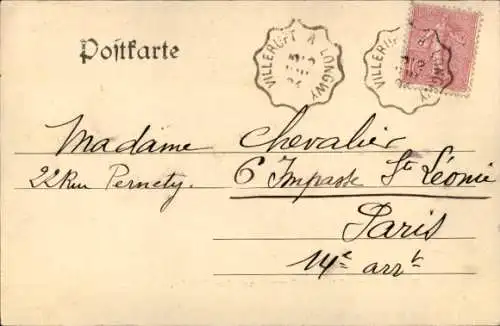 Postkarte
VILLERUPT A LONGWY
VILLERUPT A LONGWY
Madame Chevalier
22 Rue Pernety. 6 Impasse Ste Léonie
Paris
14e arrt